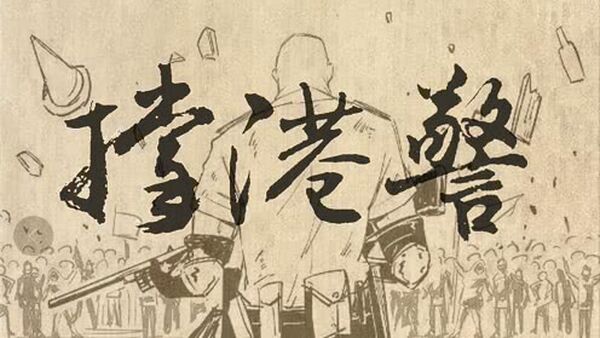 撐港警